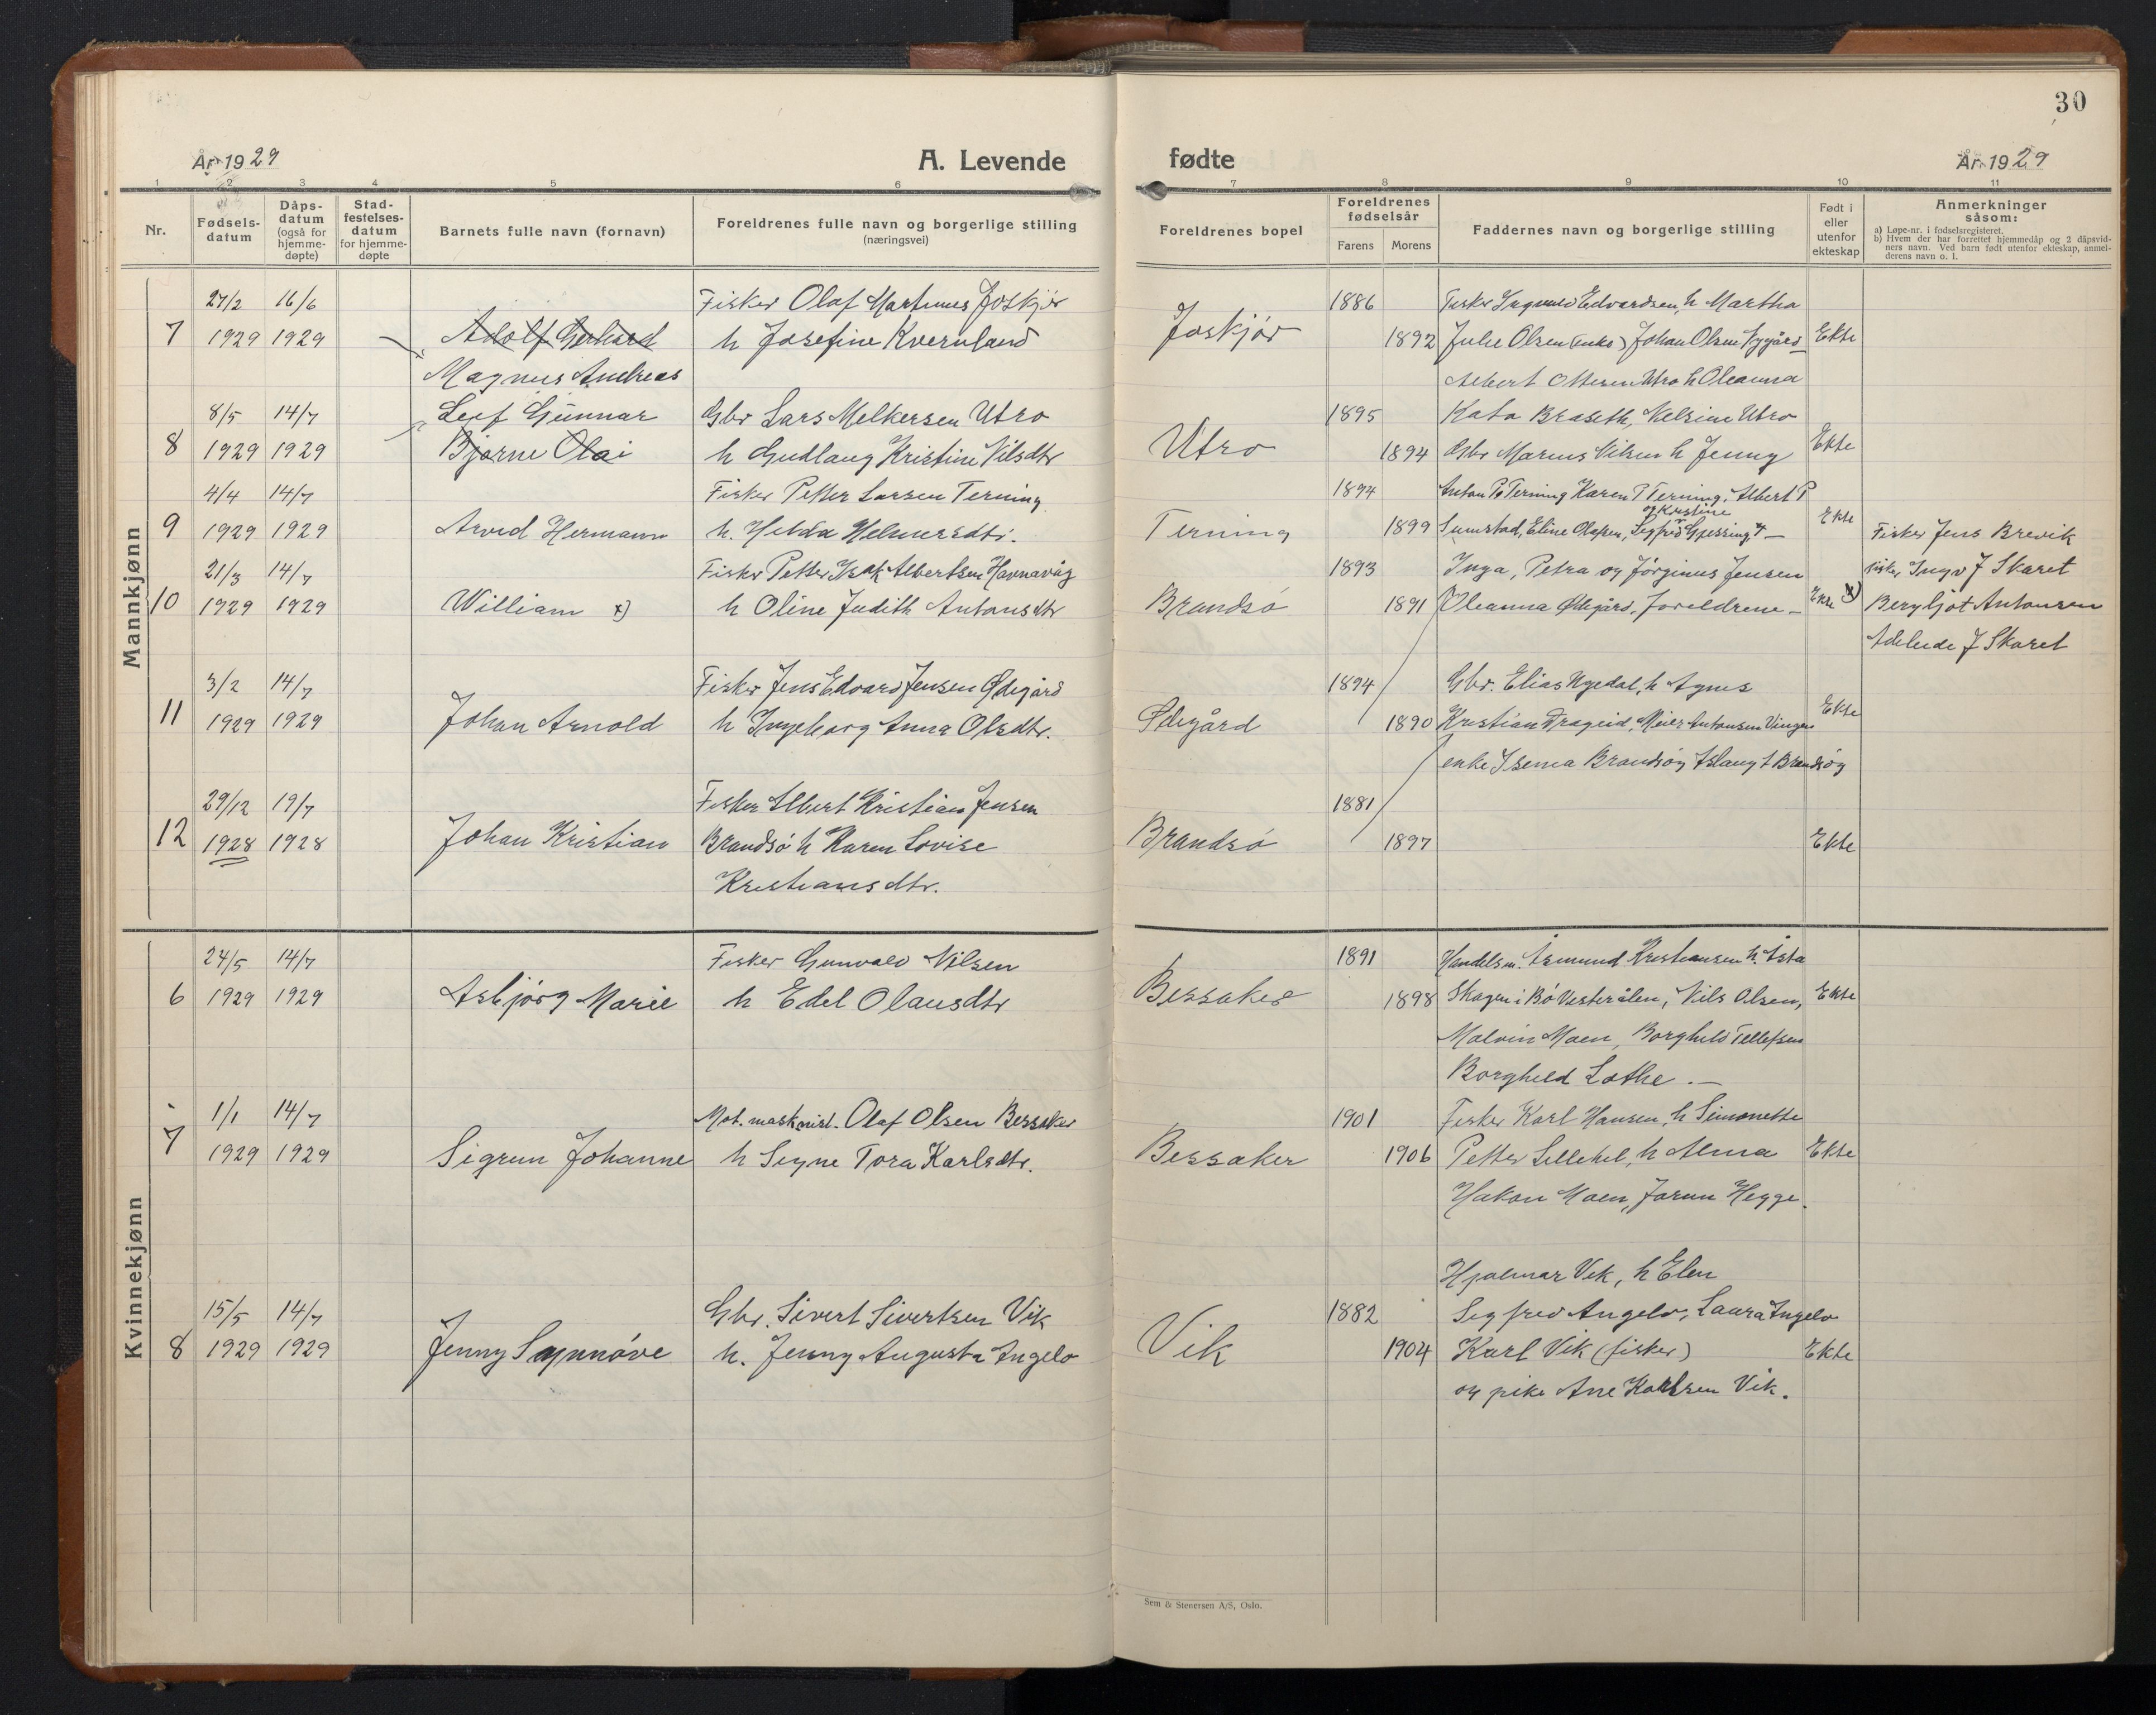 30
År 1929
A. Levende
1 2 3 4 5 6
Nr.
Fødsels-
datum
Dåps-
datum
(også for
hjemme-
døpte)
Stad-
festelses-
datum
for hjemme-
døpte
Barnets fulle navn (fornavn)
Foreldrenes fulle navn og borgerlige stilling
(næringsvei)
Mannkjønn
27/2 16/6 Fisker Olaf Martinus Joskjør
7 1929 1929 Adolf Gerhard h Josefine Kvernland
Magnus Andreas
8/5 14/7 Leif Gunnar Gbr Lars Melkersen Utro
8 1929 1929 Bjarne Olai h Gudlaug Kristine Nilsdtr
4/4 14/7 Fisker Petter Larsen Terning
9 1929 1929 Arvid Hermann h. Helmersdtr.
21/3 14/7 Fisker Petter Isak Albertsen Havnavåg
10 1929 1929 William x) h Oline Judith Antonsdtr
3/2 14/7 Fisker Jens Edvard Jensen Ødegård
11 1929 1929 Johan Arnold h Ingeborg Anna Olsdtr.
29/12 19/7 Fisker Albert Kristian Jensen
12 1928 1928 Johan Kristian Brandsø h Karen Lovise
Kristiansdtr.
Kvinnekjønn
24/5 14/7 Fisker Gunvald Nilsen
6 1929 1929 Asbjørg Marie h Edel Olausdtr
1/1 14/7 Mot. maskinist. Olaf Olsen Bessaker
7 1929 1929 Sigrun Johanne h Signe Tora Karlsdtr.
15/5 14/7 Gbr. Sivert Sivertsen Vik
8 1929 1929 Jenny Synnøve h. Jenny Augusta Angelo
fødte
År 1929
7 8 9 10 11
Foreldrenes bopel
Foreldrenes
fødselsår
Farens Morens
Faddernes navn og borgerlige stilling
Født i
eller
utenfor
ekteskap
Anmerkninger
såsom:
a) Løpe-nr. i fødselsregisteret.
b) Hvem der har forrettet hjemmedåp og 2 dåpsvid-
ners navn. Ved barn født utenfor ekteskap, anmel-
derens navn o. l.
1886 Fisker Edvardsen, h Martha
Joskjør 1892 Julie Olsen (enke) Johan Olsen Ekte
Albert Ottersen Utro h Oleanna
1895 Kata Braseth, Nelsine Utro
Utro 1894 Gbr Marius Nilsen h Jenny Ekte
1894 Anton P. Terning Karen P Terning, Albert P
og Kristine
Terning 1899 Sumstad, Eline Olafsen, Ekte Fisker Jens Brevik
1893 Inga, Petra og Jørginus Jensen fisker Ingv J Skaret
Brandsø 1891 Oleanna Ødegård, foreldrene – Ekte x) Bergljot Antonsen
Adelside J Skaret
1894 Gbr. Elias Nyedal, h Agnes
Ødegård 1890 Kristian Drageid, Meier Antonsen Ekte
enke Brandsøy Aslaug A Brandsøy
1881
Brandsø 1897 Ekte
1891 Handelsm. Åsmund Kristiansen h. Asta
Bessaker 1898 Skagen i Bø Vesterålen, Nils Olsen, Ekte
Malvin Moen, Borghild Tellefsen
Borghild Lothe. –
1901 Fisker Karl Hansen, h Simonette
Bessaker 1906 Petter h Alma Ekte
Håkon Moen, Jorun Hegge.
Hjalmar Vik, h Elen
1882 Sigfred Angelo, Laura Angelo
Vik 1904 Karl Vik (fisker) Ekte
og pike Ane Karlsen Vik.
Sem & Stenersen A/S, Oslo.